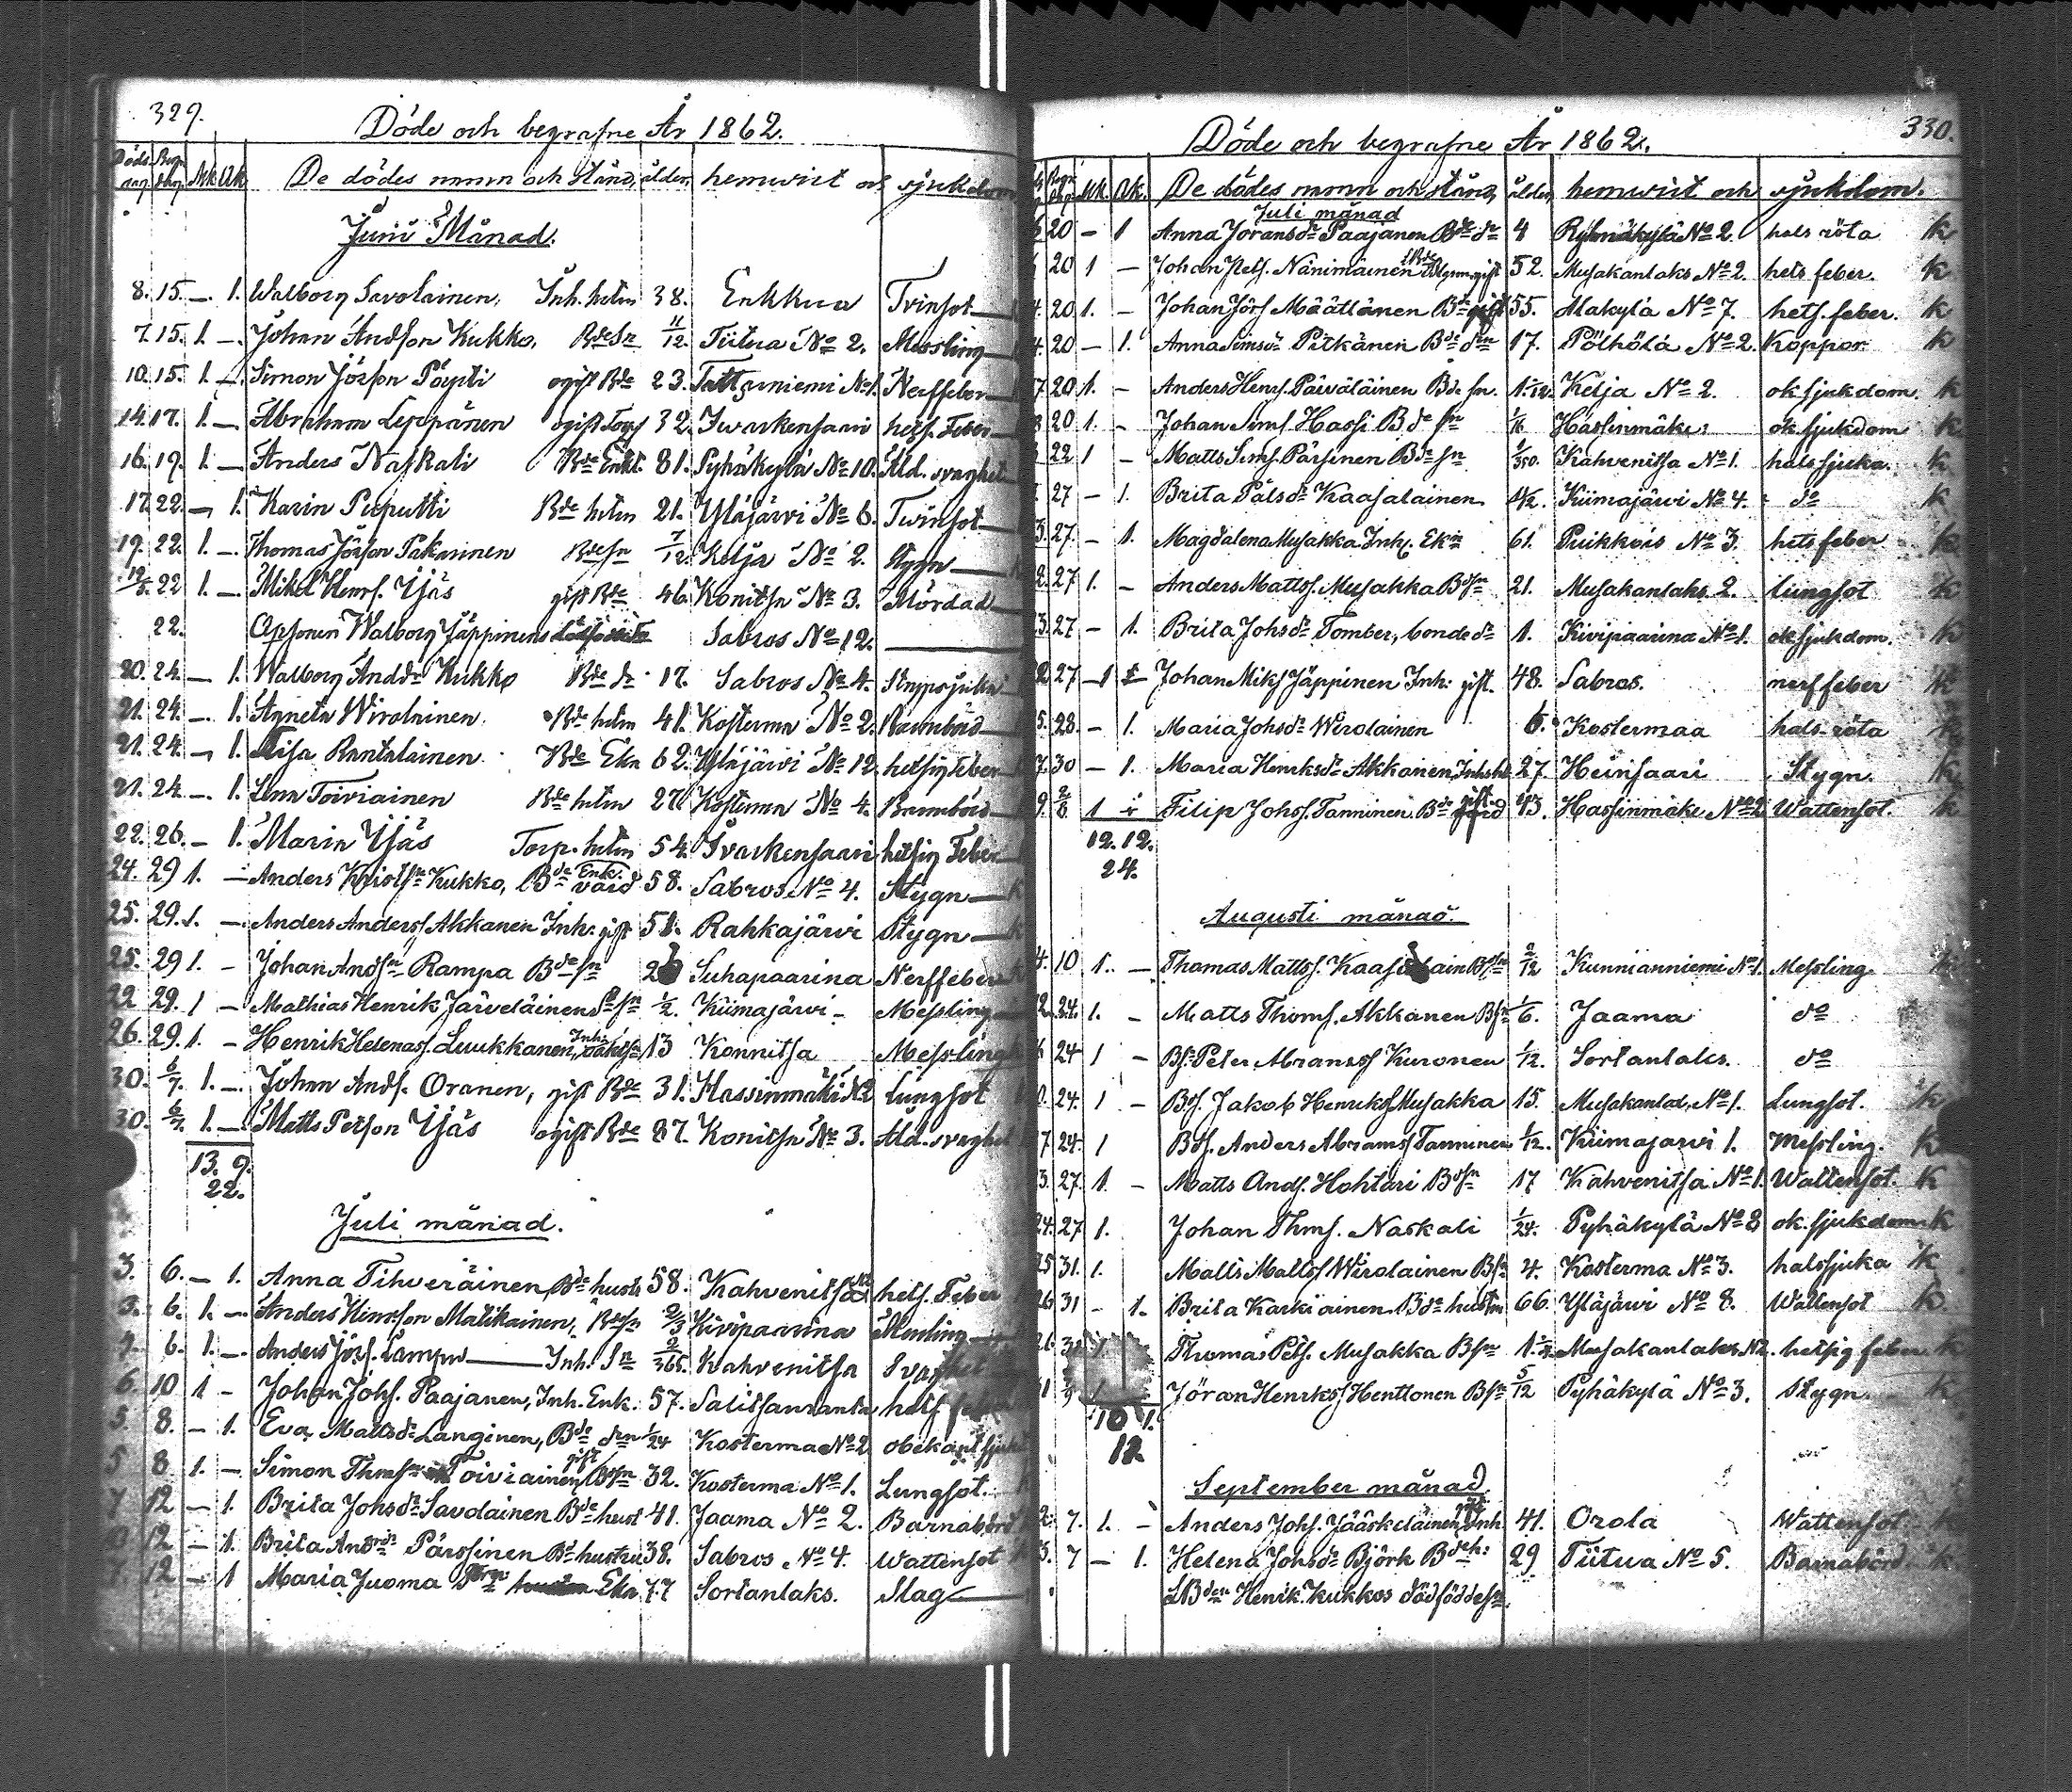 329.
Döde och begrafne År 1862.
Döds dag Begr. dag Mk Qk De dödes namn och stånd, ålder, hemwist och sjukdom
Junii Månad.
8. 15. — 1. Walborg Savolainen, Inh. hstru 38. Enkkua Tvinsot
7. 15. 1. — Johan Andsson Kukko, Bdesn 11/12. Tiitua No 2. Messling
10. 15. 1. — Simon Jörson Pöysti ogift Bde 23. Nerffeber
14. 17. 1. — Abraham Leppänen ogift Torp 32. Ivaskensaari hets. Feber
16. 19. 1. — Anders Naskali Bde Enkl. 81. Pyhäkylä No 10. Åld. svaghet
17. 22. — 1. Karin Puputti Bde hstru 21. Yläjärvi No 6. Tvinsot
19. 22. 1. — Thomas Jörson Pakarinen Bdesn 7/12 Kelja No 2. Stygn
19/5. 22 1. — Mikel Henrs. Yjäs gift Bde 46. Konitsa No 3. Mördad
22. Walborg Jäppinens Sabros No 12.
20. 24. — 1. Walborg Andsdr Kukko Bde dr 17. Sabros No 4.
21. 24. — 1. Agneta Wirolainen Bde hstru 41. Kosterma No 2. Barnbörd
21. 24. — 1. Lisa Rantalainen Bde Eka 62. Yläjärvi No 12. hetsig Feber
21. 24. — 1. Lena Toiviainen Bde hstru 27. Kosterma No 4. Barnbörd
22. 26. — 1. Maria Yjäs Torp. hstru 54. Ivaskensaari hetsig Feber
24. 29 1. — Anders Kukko, Bde Enk. 58. Sabros No 4. Stygn
25. 29. 1. — Anders Anderss Akkanen Inh. gift 51. Rahkajärvi Stygn
25. 29 1. — Johan Andsn Rampa Bdesn Suhapaarina Nerffeber
22 29. 1 — Mathias Henrik Järveläinen 1/2. Kiimajärvi Messling
26. 29. 1. — Henrik Helenas. Luukkanen, 13 Konnitsa Messling
30. 6/7. 1. — Johan Ands. Oranen, gift Bde 31. Hassinmäki No 2 Lungsot
30. 6/7. 1. — Matts Petson Yjäs ogift Bde 87. Konitsa No 3. Åld. svaghet
13. 9.
22.
Juli månad.
3. 6. — 1. Anna Tihveräinen, Bde hustr 58. Kahvenitsa hets. Feber
3. 6. 1. — Anders Henrsson Malikainen, Bdesn 2/3 Kivipaarina Messling
4. 6. 1. — Anders Jörs. Lampu Inh. Sn 2/365. Kahvenitsa Svaghet
6. 10 1 — Johan Johs. Paajanen, Inh. Enk. 57. Salitsanranta hets feber
5. 8. — 1. Eva Mattsdr Langinen, Bde drn 1/24 Kosterma No 2 obekant sjukd
5 8 1. — Simon Thmsn Toiviainen, gift Bdesn 32. Kosterma No 1. Lungsot.
7 12 — 1. Brita Johsdr Savolainen Bde hust 41. Jaama No 2. Barnabörd
12 — 1. Brita Andsdr Pärssinen Bd hustru 38. Sabros No 4. Wattensot
7. 12 — 1 Maria Juoma Eka 77 Sortanlaks. Slag
330.
Döde och begrafne År 1862.
Mk. Qk. De dödes namn och stånd, ålder, hemwist och sjukdom.
Juli månad
20 — 1 Anna Jöransdr Paajanen Bde dr 4 Rykmäkylä No 2. hals röta k
20 1 — Johan Pets. Nänimäinen gift 52. Musakanlaks No 2. hets feber. k
20 1. — Johan Jörs Määttänen Bde gift 55. Makylä No 7. hets. feber. k
20 — 1. Anna Simsdr Pitkänen Bde drn 17. Pölhölä No 2. Koppor k
20 1. — Anders Henrs. Päiväläinen Bde sn. 1 1/12. Kelja No 2. ok sjukdom. k
20 1. — Johan Sims. Hassi Bde sn 1/6 Hassinmäki ok sjukdom k
22 1 — Matts Sims. Pärsinen Bde sn 1/350. Kahvenitsa No 1. hals sjuka. k
27 — 1. Brita Pålsdr Kaasalainen 4/12. Kiimajärvi No 4. do k
27. — 1. Magdalena Musakka Inh. Ekn 61. Puikkois No 3. hets feber k
27 1. — Anders Mattss. Musakka Bdsn 21. Musakanlaks 2. lungsot k
27 — 1. Brita Johsdr Tomber, bonde dr 1. Kivipaarina No 1. ok sjukdom. k
27 — 1 Johan Miks Jäppinen Inh. gift. 48. Sabros. nerffeber k
28. — 1. Maria Johsdr Wirolainen 6. Kostermaa hals-röta k
30 — 1. Maria Henrksdr Akkanen Inhsh. 27. Heinsaari Stygn k
2/8 1 Filip Johs. Tanninen. Bde gift 43. Hassinmäki No 2 Wattensot. k
12. 12.
24.
Augusti månad.
10 1. — Thomas Mattss. Kaasalain Bdsn 2/12 Kunnianniemi No 1. Messling k
24. 1. — Matts Thoms. Akkanen Bsn 1/6. Jaama do
24 1 — Bs. Peter Abramss Kuronen 1/12. Sortanlaks. do
24. 1 — Bds. Jakob Henriks Musakka 15. Musakanlak. No 1. Lungsot. k
24. 1 Bds. Anders Abrams Tanninen 1/12. Kiimajarvi 1. Messling. k
27. 1. — Matts Ands. Hohtari Bdsn 17 Kahvenitsa No 1. Wattensot. k
24. 27 1. Johan Thms. Naskali 1/24. Pyhäkylä No 8 ok. sjukdom k
25 31. 1. Matts Matts Wirolainen Bsn 4. Kosterma No 3. halssjuka k
26 31 — 1. Brita Karkiainen Bde hustru 66. Yläjärvi No 8. Wattensot k
26. Thomas Pets. Musakka Bsn Musakanlaks N2. hetsig feber k
Jöran Henrks Henttonen Bsn 5/12 Pyhäkylä No 3. Stygn. k
10 1.
12
September månad
7. 1. — Anders Johs. Jääskeläinen Inh. 41. Orola Wattensot k
7 — 1. Helena Johsdr Björk Bdeh: 29 Tiitua No 5. Barnabörd k
Henrik Kukkos dödfödde sn.